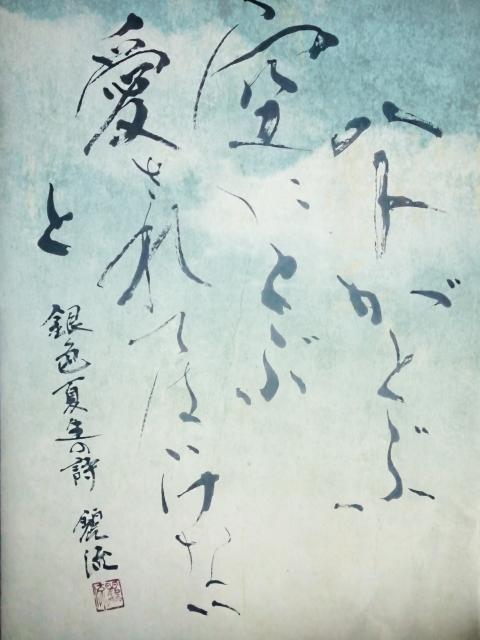 がとぶ
空にとぶ
愛されてはいけない
と
銀色夏生の詩 麗流